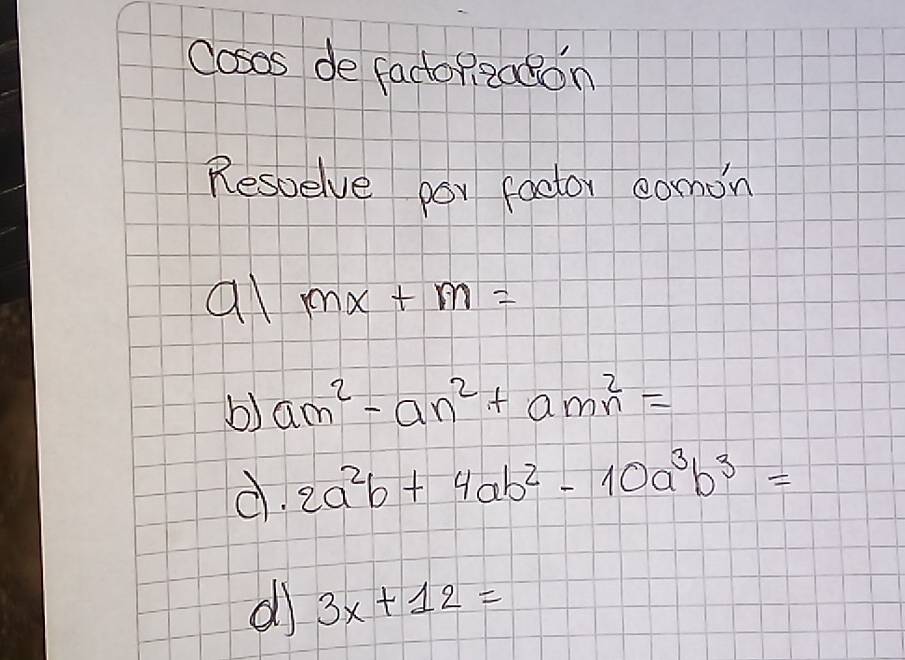 Casos de factorización
Resuelve por factor común
a) mx + m =
b) am² - an² + amn² =
c). 2a²b + 4ab² - 10a³b³ =
d) 3x + 12 =